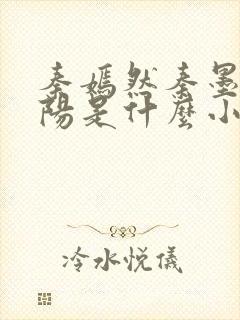 秦嫣然秦墨
陽是什麼小
冷水悅儀